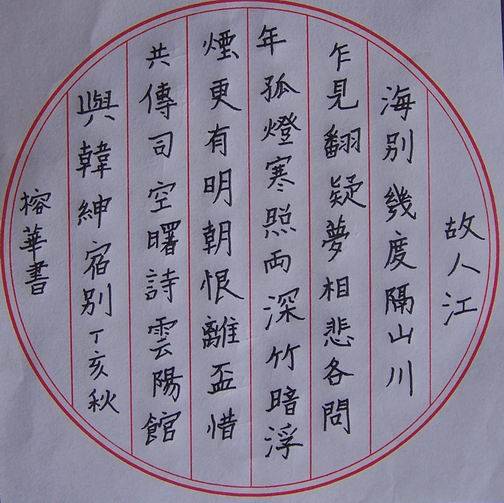 故人江
海别幾度隔山川
乍見翻疑夢相悲各問
年孤燈寒照雨深竹暗浮
煙更有明朝恨離盃惜
共傳司空曙詩雲陽館
與韓紳宿别丁亥秋
榕華書